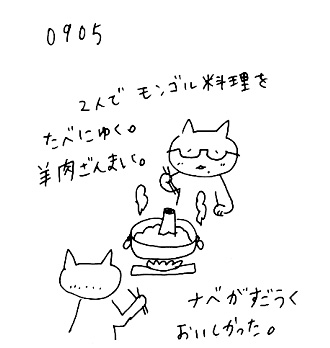 0905
2人で モンゴル料理を
たべにゆく。
羊肉ざんまい。
ナベがすごうく
おいしかった。